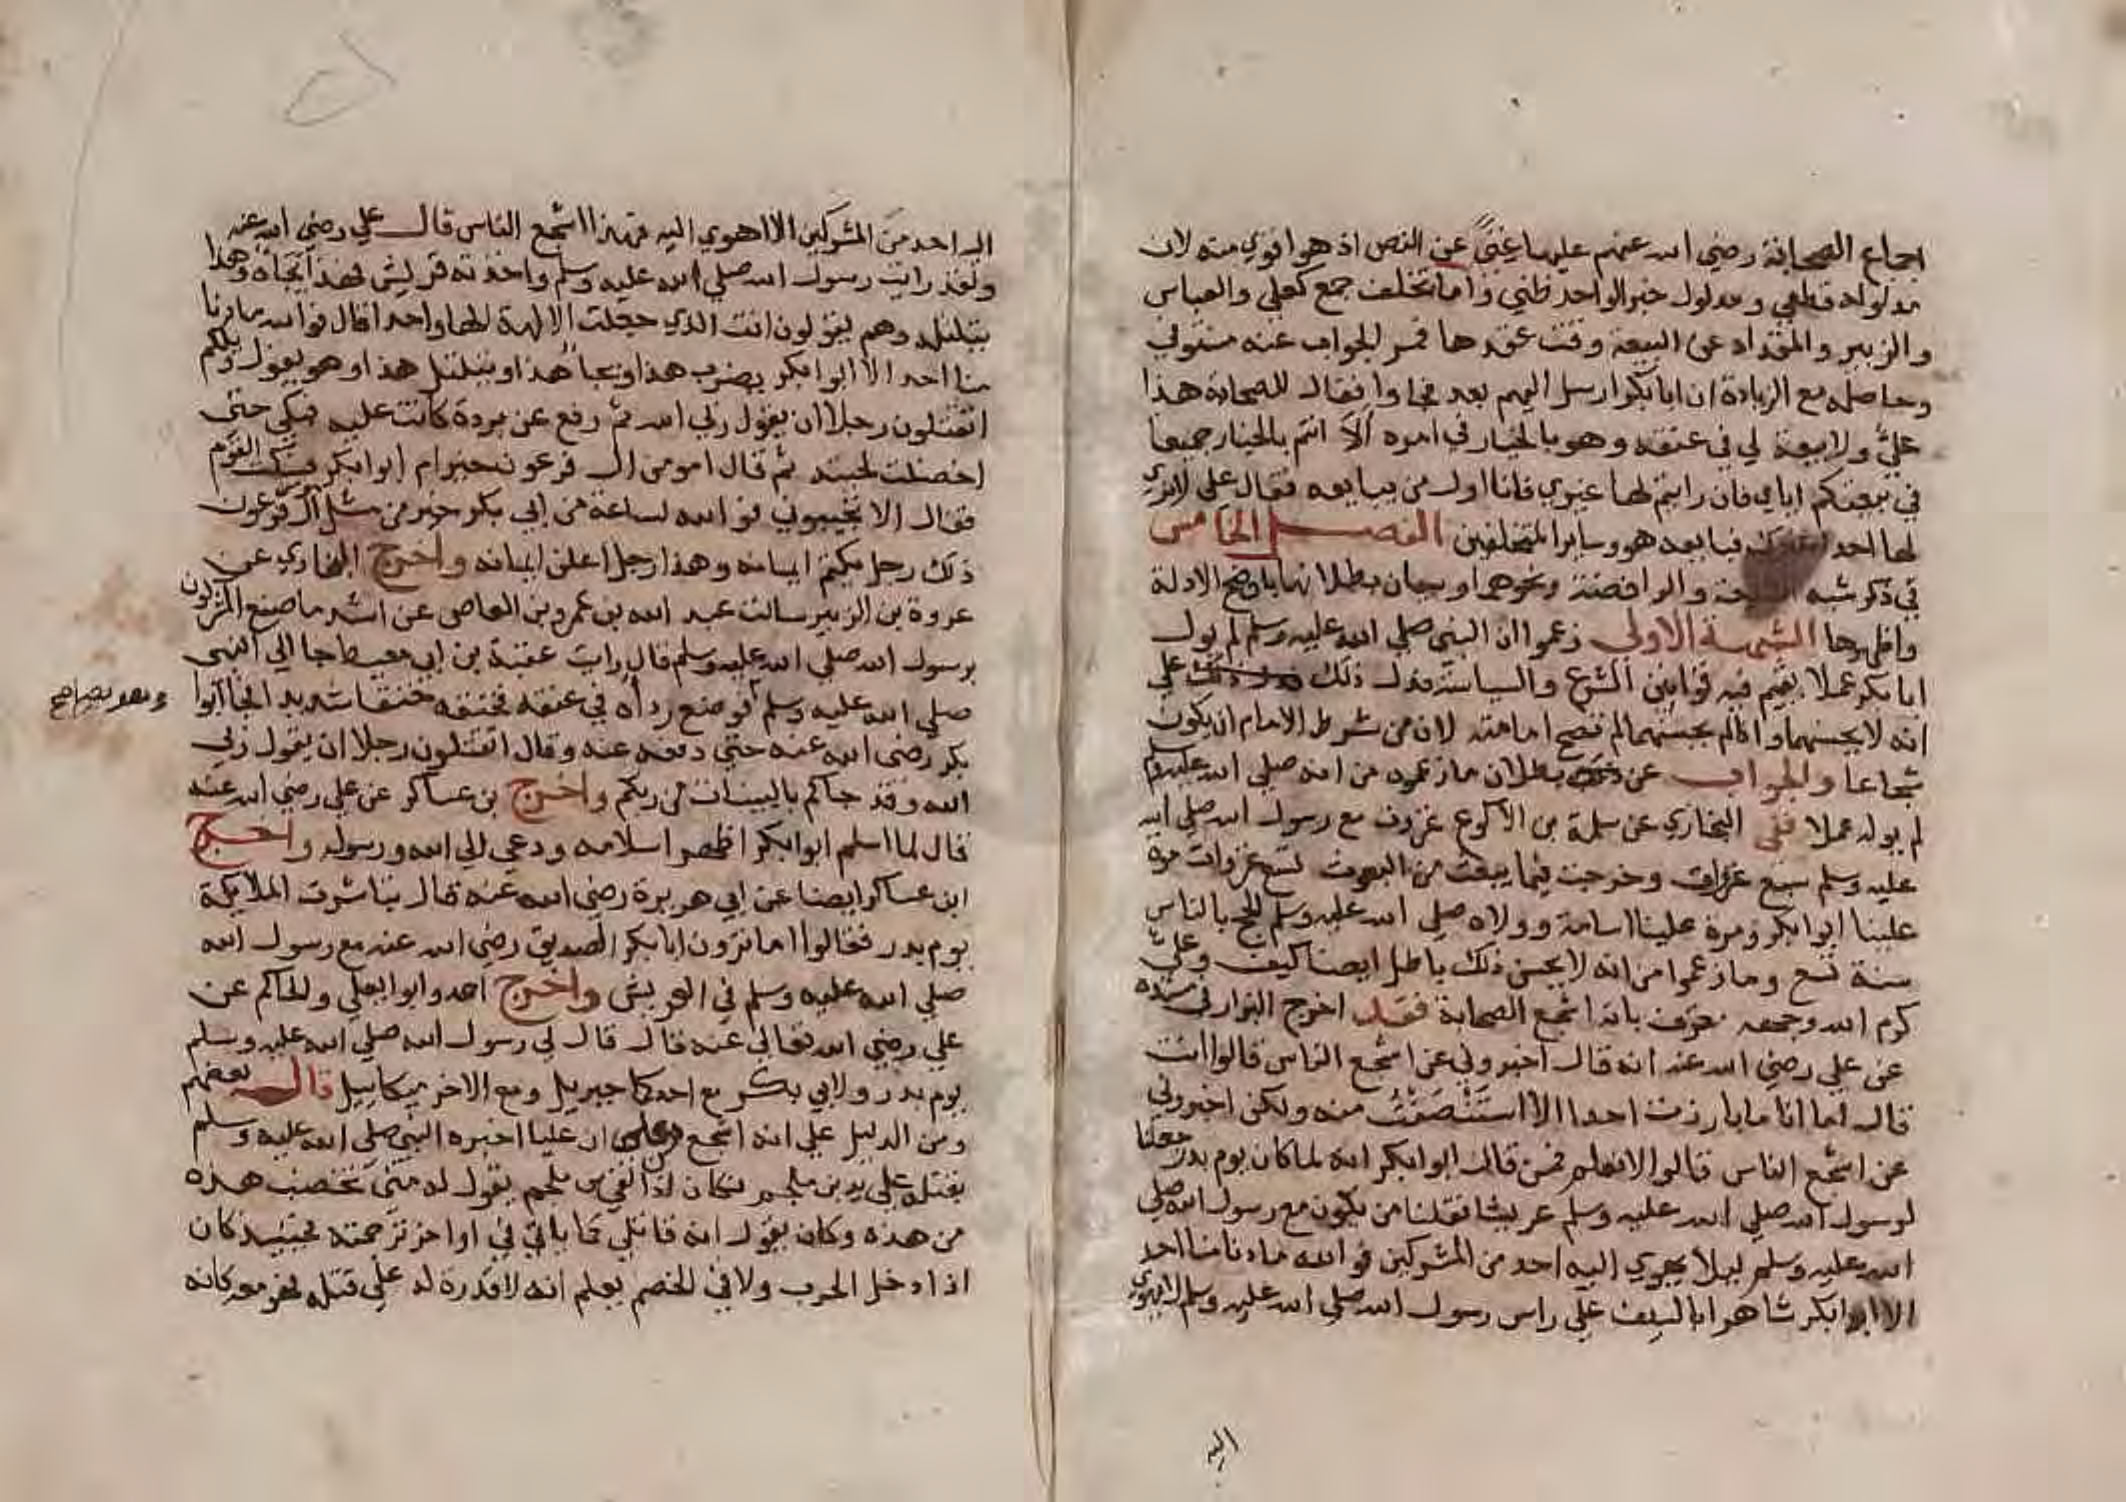 اجماع الصحابة رضي الله عنهم عليها غنًي عن النص اذ هو اقوي منه لان
مدلوله قطعي ومدلول خبر الواحد ظني واما تخلف جمع كعلي والعباس
والزبير والمقداد عن البيعة وقت عقدها فمر الجواب عنه مستوفي
وحاصله مع الزيادة ان ابا بكر ارسل اليهم بعد فجاوا فقال للصحابة هذا
عليٌّ ولا بيعة لي في عنقه وهو بالخيار في امره ألا انتم بالخيار جميعا
في بيعتكم اياي فان رايتم لها غيري فانا اول من يبايعه فقال علي لا نري
لها احد غيرك فبايعه هو وساير المتخلفين الفصل الخامس
في ذكر شبه الشيعة والرافضة ونحوهم وبيان بطلانها باوضح الادلة
واظهرها الشبهة الاولى زعموا ان النبي صلي الله عليه وسلم لم يول
ابا بكر عملا يقيم فيه قوانين الشرع والسياسة فدل ذلك علي
انه لا يحسنهما واذا لم يحسنهما لم تصح امامته لان من شرط الامام ان يكون
شجاعا والجواب عن ذلك بطلان ما زعموه من انه صلي الله عليه وسلم
لم يوله عملا ففي البخاري عن سلمة بن الاكوع غزوت مع رسول الله صلي الله
عليه وسلم سبع غزوات وخرجت فيما يبعث من البعوث تسع غزوات مرة
علينا ابوا بكر ومرة علينا اسامة وولاه صلي الله عليه وسلم الحج بالناس
سنة تسع وما زعموا من انه لا يحسن ذلك باطل ايضا كيف وعلي
كرم الله وجهه معترف بانه اشجع الصحابة فقد اخرج البزار في مسنده
عن علي رضي الله عنه انه قال اخبروني عن اشجع الناس قالوا انت
قال اما انا ما بارزت احدا الا استَنْصَفْتُ منه ولكن اخبروني
عن اشجع الناس قالوا لا نعلم فمن قال ابوا بكر انه لما كان يوم بدر جعلنا
لرسول الله صلي الله عليه وسلم عريشا فقلنا من يكون مع رسول الله صلي
الله عليه وسلم ليلا يهوي اليه احد من المشركين فوالله ما دنا منا احد
الا ابوا بكر شاهرا بالسيف علي راس رسول الله صلي الله عليه وسلم لا يهوي
اليه
اليه احد من المشركين الا اهوي اليه فهذا اشجع الناس قال علي رضي الله عنه
ولقد رايت رسول الله صلي الله عليه وسلم واخذته قريش فهذا يجاه وهذا
يتلتله وهم يقولون انت الذي جعلت الالهة الها واحدا قال فوالله ما دنا
منا احد الا ابوا بكر يضرب هذا ويجا هذا ويتلتل هذا وهو يقول ويلكم
اتقتلون رجلا ان يقول ربي الله ثم رفع عن بردة كانت عليه فبكي حتى
اخضلت لحيته ثم قال امومن ال فرعون خير ام ابوا بكر فسكت القوم
فقال الا تجيبوني فوالله لساعة من ابي بكر خير من مثل ال فرعون
ذلك رجل يكتم ايمانه وهذا رجل اعلن ايمانه واخرج البخاري عن
عروة بن الزبير سالت عبد الله بن عمرو بن العاص عن اشد ما صنع المشركون
برسول الله صلي الله عليه وسلم قال رايت عقبة بن ابي معيط جا الي النبي
صلي الله عليه وسلم فوضع رداه في عنقه فخنقه خنقا شديدا فجا ابوا
وهو يصلي صح
بكر رضى الله عنه حتي دفعه عنه وقال اتقتلون رجلا ان يقول ربي
الله وقد جاكم بالبينات من ربكم واخرج بن عساكر عن علي رضي الله عنه
قال لما اسلم ابوا بكر اظهر اسلامه ودعي الي الله ورسوله واخرج
ابن عساكر ايضا عن ابي هريرة رضي الله عنه قال تباشرت الملايكة
يوم بدر فقالوا اما ترون ابا بكر الصديق رضي الله عنه مع رسول الله
صلي الله عليه وسلم في العريش واخرج احمد وابوا يعلي والحاكم عن
علي رضي الله تعالى عنه قال قال لي رسول الله صلي الله عليه وسلم
يوم بدر ولابي بكر مع احدكما جبريل ومع الاخر ميكاييل قال بعضهم
ومن الدليل علي انه اشجع من علي ان عليا اخبره النبي صلي الله عليه وسلم
بقتله علي يد بن ملجم فكان اذا لقي بن ملجم يقول له متى تخضب هذه
من هذه وكان يقول انه قاتلي كما ياتي في اواخر ترجمته فحينيذ كان
اذا دخل الحرب ولاقي الخصم يعلم انه لا قدرة له علي قتله فهو معه كانه